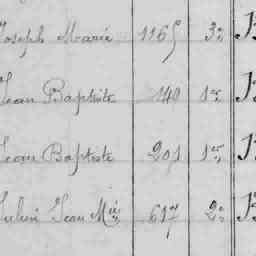 Joseph Marie 1165 3e
Jean Baptiste 140 1er
Jean Baptiste 201 1er
Julien Jean Mie 617 2e